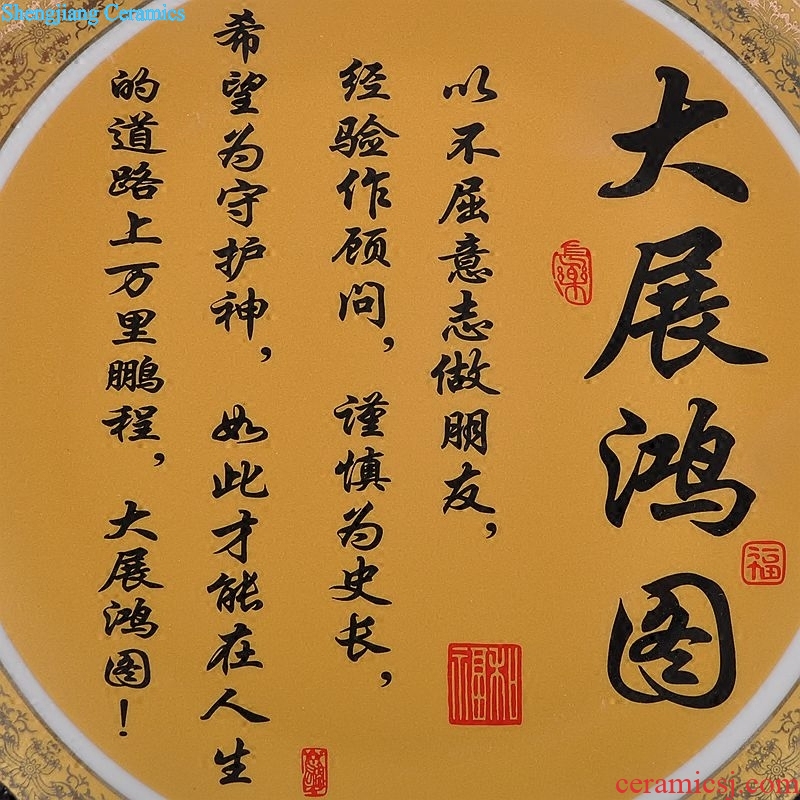 Shengjiang Ceramics
大展鸿图
長樂
福
以不屈意志做朋友，
经验作顾问，谨慎为史长，
希望为守护神，如此才能在人生
的道路上万里鹏程，大展鸿图！
和福
ceramicsj.com